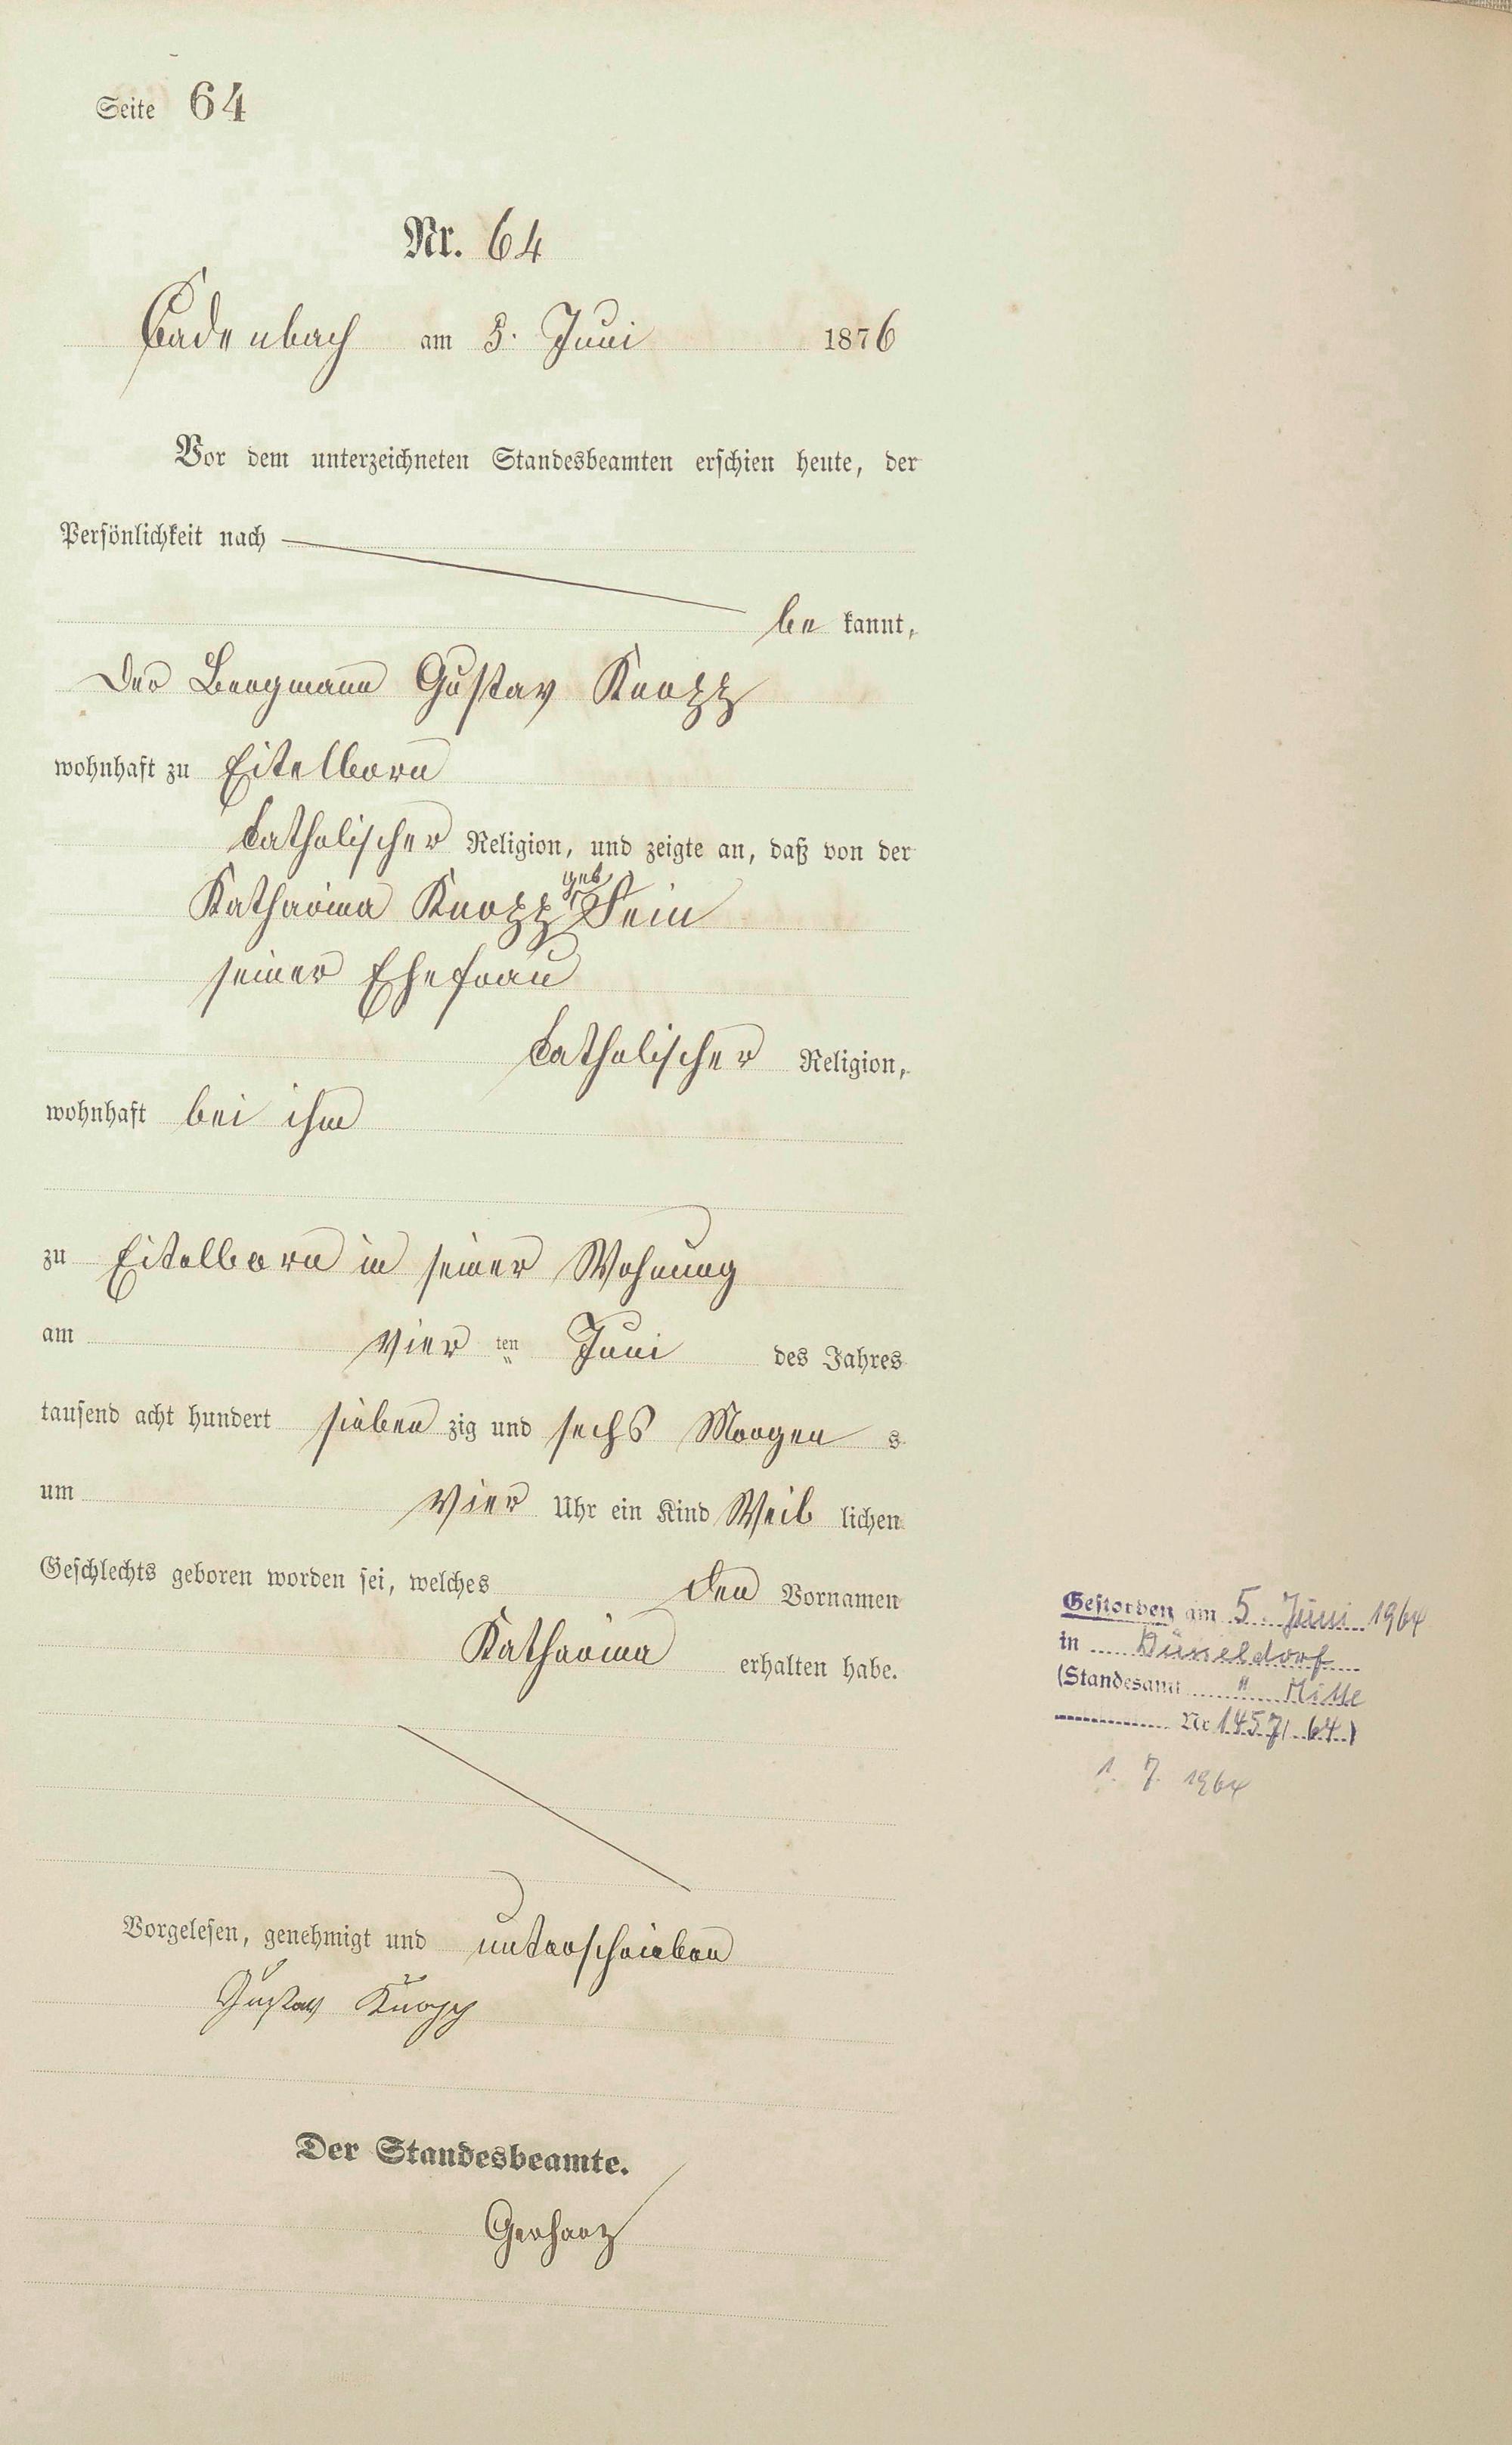 Seite 64
Nr. 64
Cadenbach am 5. Juni 1876
Vor dem unterzeichneten Standesbeamten erschien heute, der
Persönlichkeit nach
be kannt,
der Bergmann Gustav Knopp
wohnhaft zu Eitelborn
katholischer Religion, und zeigte an, daß von der
geb
Katharina Knopp Fein
seiner Ehefrau
katholischer Religion,
wohnhaft bei ihm
zu Eitelborn in seiner Wohnung
am vier ten Juni des Jahres
tausend acht hundert sieben zig und sechs Morgen s
um vier Uhr ein Kind Weib lichen
Geschlechts geboren worden sei, welches den Vornamen
Katharina erhalten habe.
Vorgelesen, genehmigt und unterschrieben
Gustav Knopp
Der Standesbeamte.
Gerharz
Gestorben am 5. Juni 1964
in Düsseldorf
(Standesamt " Mitte
Nr 1457/64)
1. 7. 1964